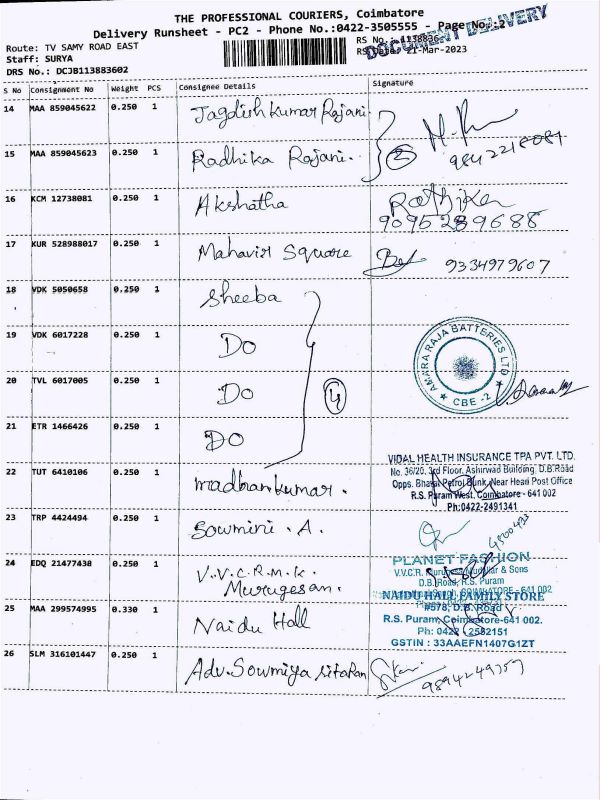 THE PROFESSIONAL COURIERS, Coimbatore
Delivery Runsheet - PC2 - Phone No.:0422-3505555 - Page No.:2
DOCUMENT DELIVERY
Route: TV SAMY ROAD EAST
RS No.:
Staff: SURYA
RS Date: 21-Mar-2023
DRS No.: DCJB113883602
S No Consignment No Weight PCS Consignee Details Signature
14 MAA 859045622 0.250 1 Jagdish Kumar Rajani
15 MAA 859045623 0.250 1 Radhika Rajani. 2
16 KCM 12738081 0.250 1 Akshatha Rathika
9095289688
17 KUR 528988017 0.250 1 Mahavir Square 9334979607
18 VDK 5050658 0.250 1 Sheeba
19 VDK 6017228 0.250 1 Do
AMARA RAJA BATTERIES LTD
CBE - 2
20 TVL 6017005 0.250 1 Do 4
21 ETR 1466426 0.250 1 Do
VIDAL HEALTH INSURANCE TPA PVT. LTD.
No. 36/20, 3rd Floor, Ashirwad Building, D.B.Road
Opps. Bharat Petrol Bunk, Near Head Post Office
R.S. Puram West, Coimbatore - 641 002
Ph:0422-2491341
22 TUT 6410106 0.250 1 madhankumar.
23 TRP 4424494 0.250 1 Sowmini . A.
24 EDQ 21477438 0.250 1 V.V.C.R.M.K.
Murugesan.
PLANET FASHION
V.V.C.R. & Sons
D.B. Road, R.S. Puram
COIMBATORE - 641 002
25 MAA 299574995 0.330 1 Naidu Hall
NAIDU HALL FAMILY STORE
#578, D.B. Road
R.S. Puram, Coimbatore-641 002.
Ph: 0422 - 2552151
GSTIN : 33AAEFN1407G1ZT
26 SLM 316101447 0.250 1 Adv. Sowmiya